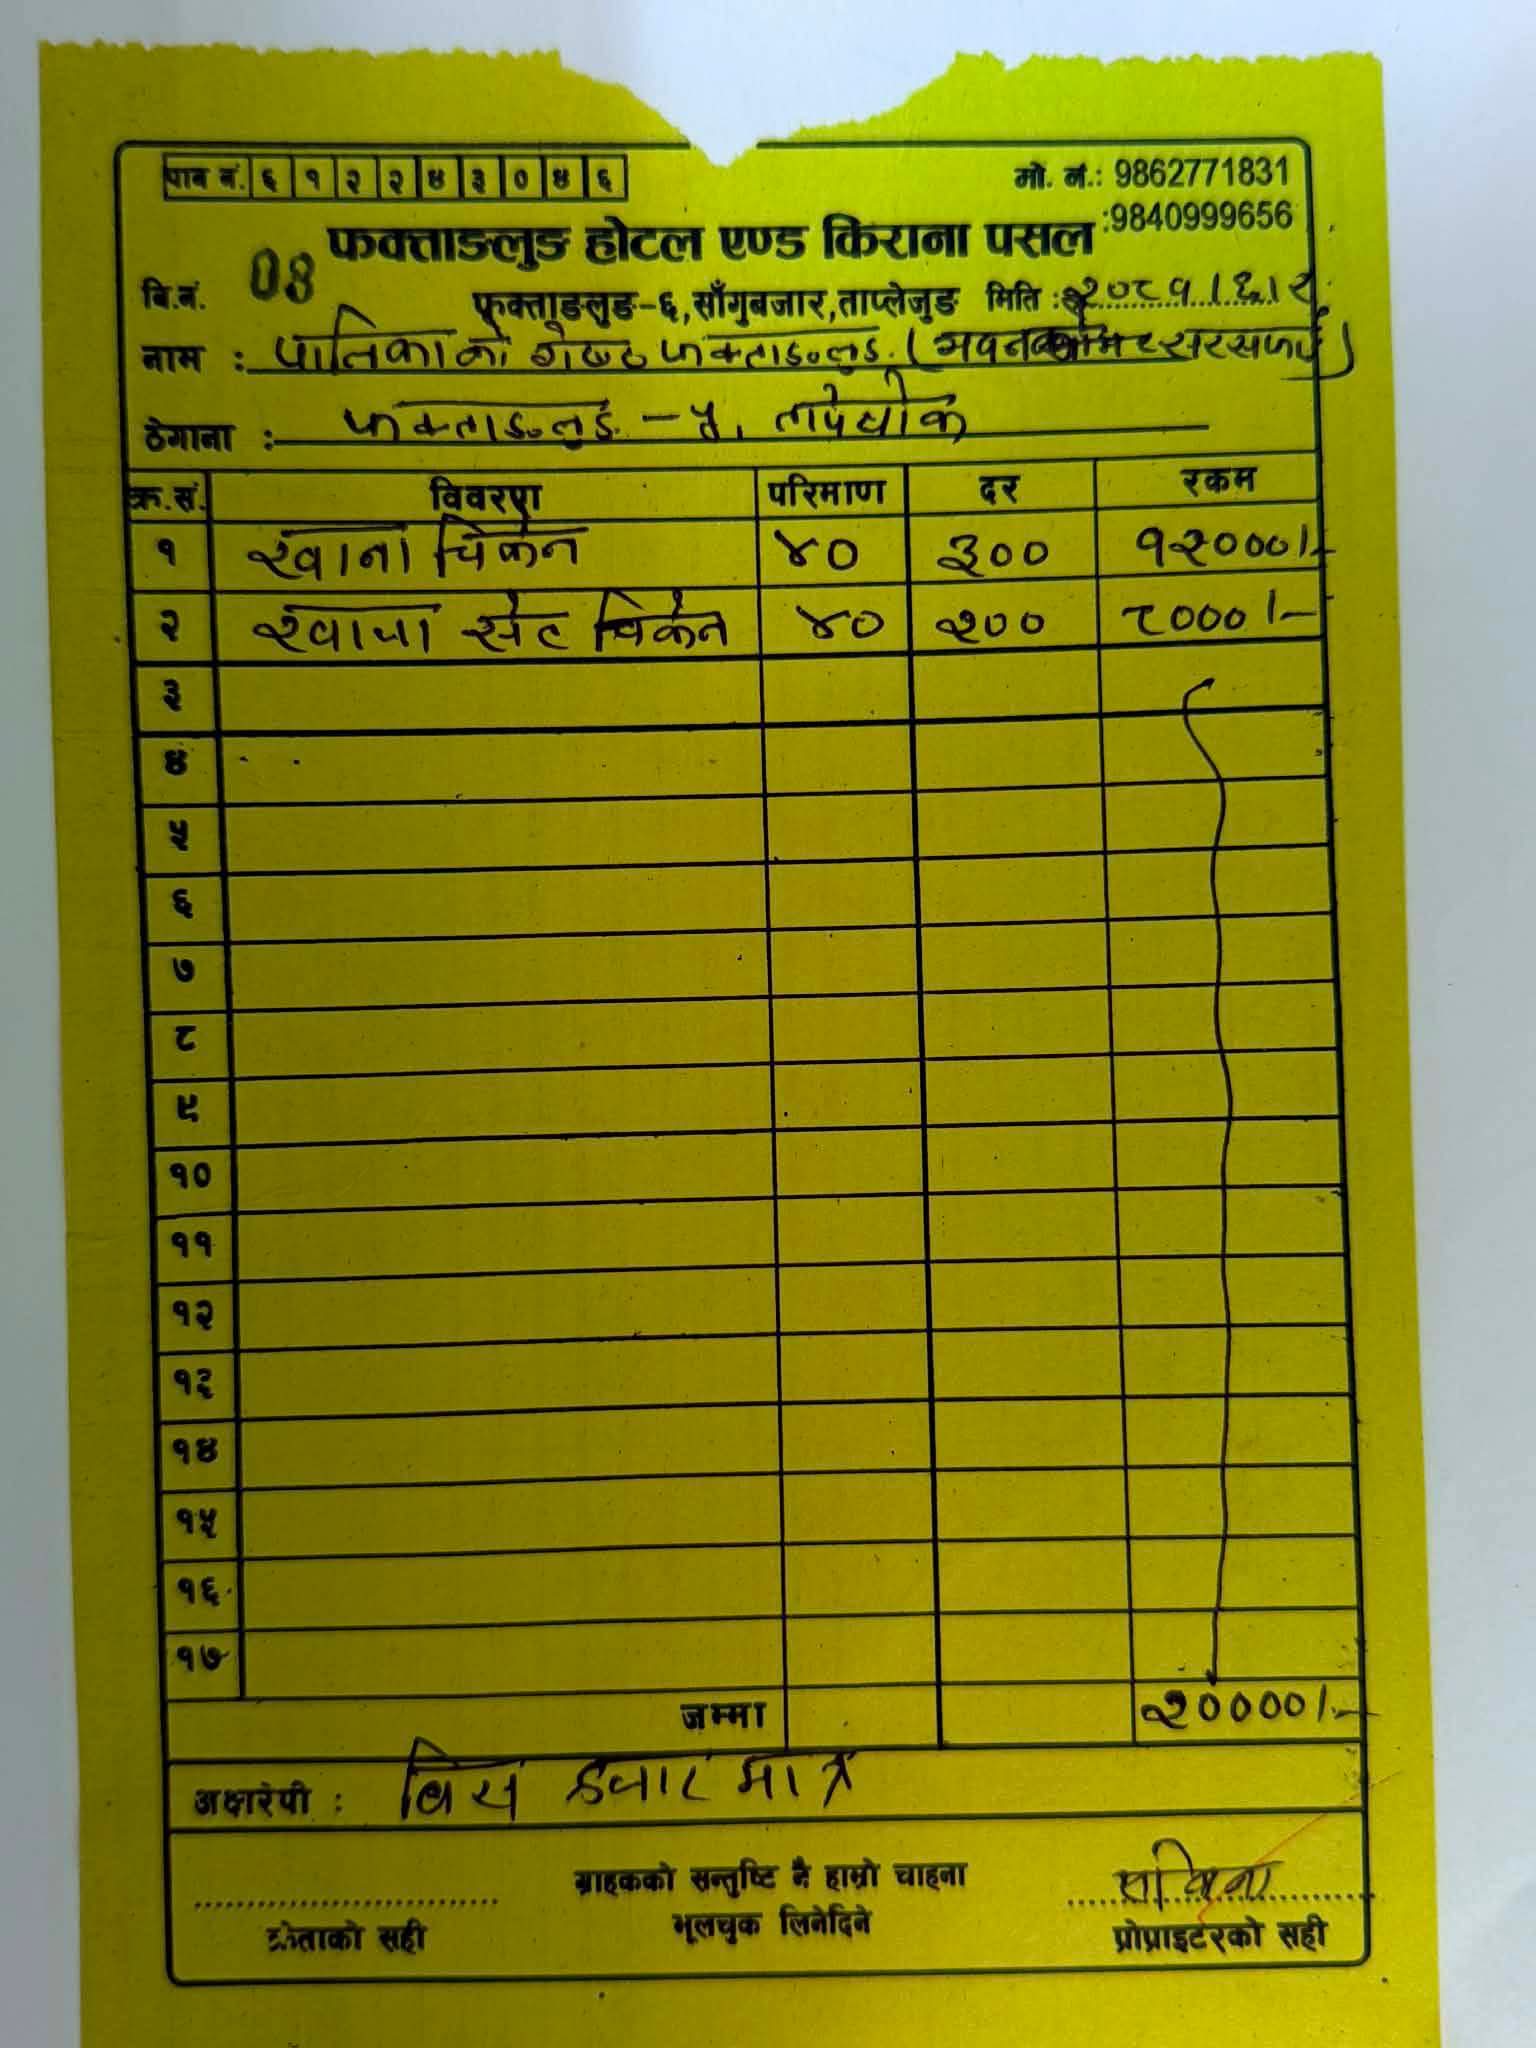 पान नं. ६ १ २ २ ४ ३ ० ४ ६
मो. नं.: 9862771831
:9840999656
फक्ताङलुङ होटल एण्ड किराना पसल
बि.नं. 08
फक्ताङलुङ-६, साँगुबजार, ताप्लेजुङ मिति : २०८१।६।२
नाम : पालिकाको गेष्ठ फक्ताङलुङ (भवन सरसफाई)
ठेगाना : फक्ताङलुङ - ५, तापेथोक
क्र.सं. विवरण परिमाण दर रकम
१ खाना चिकेन ४० ३०० १२०००।-
२ खाजा सेट चिकेन ४० २०० ८०००।-
३
४
५
६
७
८
९
१०
११
१२
१३
१४
१५
१६
१७
जम्मा २००००।-
अक्षरेपी : बिस हजार मात्र
ग्राहकको सन्तुष्टि नै हाम्रो चाहना
भूलचुक लिनेदिने
क्रेताको सही
प्रोप्राइटरको सही